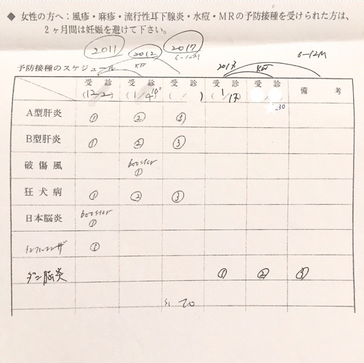 ◆ 女性の方へ:風疹・麻疹・流行性耳下腺炎・水痘・MRの予防接種を受けられた方は、
2ヶ月間は妊娠を避けて下さい。
2011 2012 2017
(6-12M) 6-12M
予防接種のスケジュール
受診 受診 受診 受診 受診 備考
(12/2) ( / ) (1/17)
A型肝炎 ① ② ③
B型肝炎 ① ② ③
破傷風 booster ①
狂犬病 ① ② ③
日本脳炎 booster ①
インフルエンザ ①
ダニ脳炎 ① ② ③